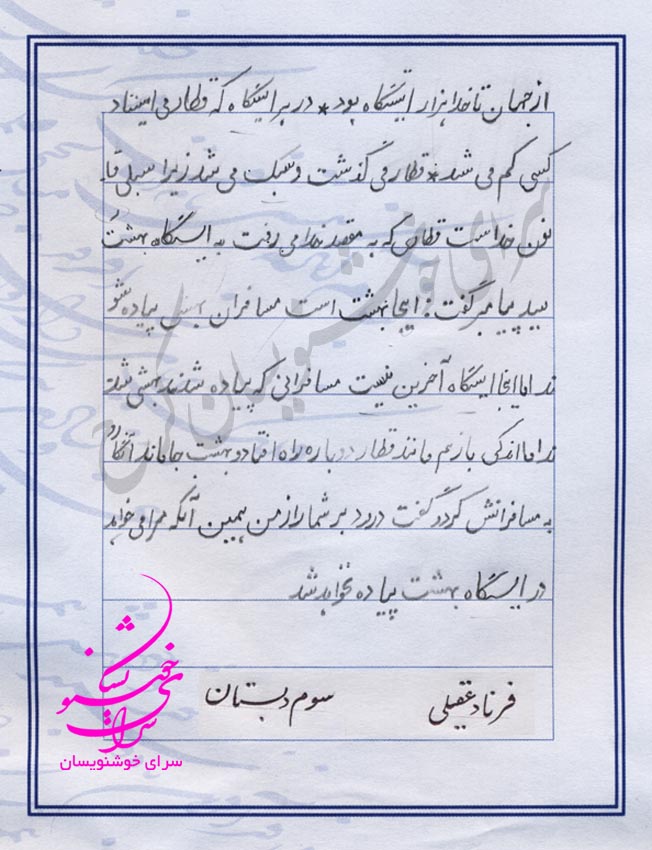 از جهان تا خدا هزار ایستگاه بود * در هر ایستگاه که قطار می ایستاد
کسی کم می شد * قطار می گذشت و سبک می شد زیرا سبکی قا
نون خداست قطاری که به مقصد خدا می رفت به ایستگاه بهشت
سید پیامبر گفت : اینجا بهشت است مسافران بهشتی پیاده شو
ند اما اینجا ایستگاه آخرین نیست مسافرانی که پیاده شدند بهشتی شد
ند اما اندکی باز هم ماندند قطار دوباره راه افتاد و بهشت جا ماند آنگاه رو
به مسافرانش کرد و گفت درود بر شما راز من همین آنکه مرا می خواهد
در ایستگاه بهشت پیاده نخواهد شد
فرناد عقیلی سوم دبستان
سرای خوشنویسان
سرای خوشنویسان کرج